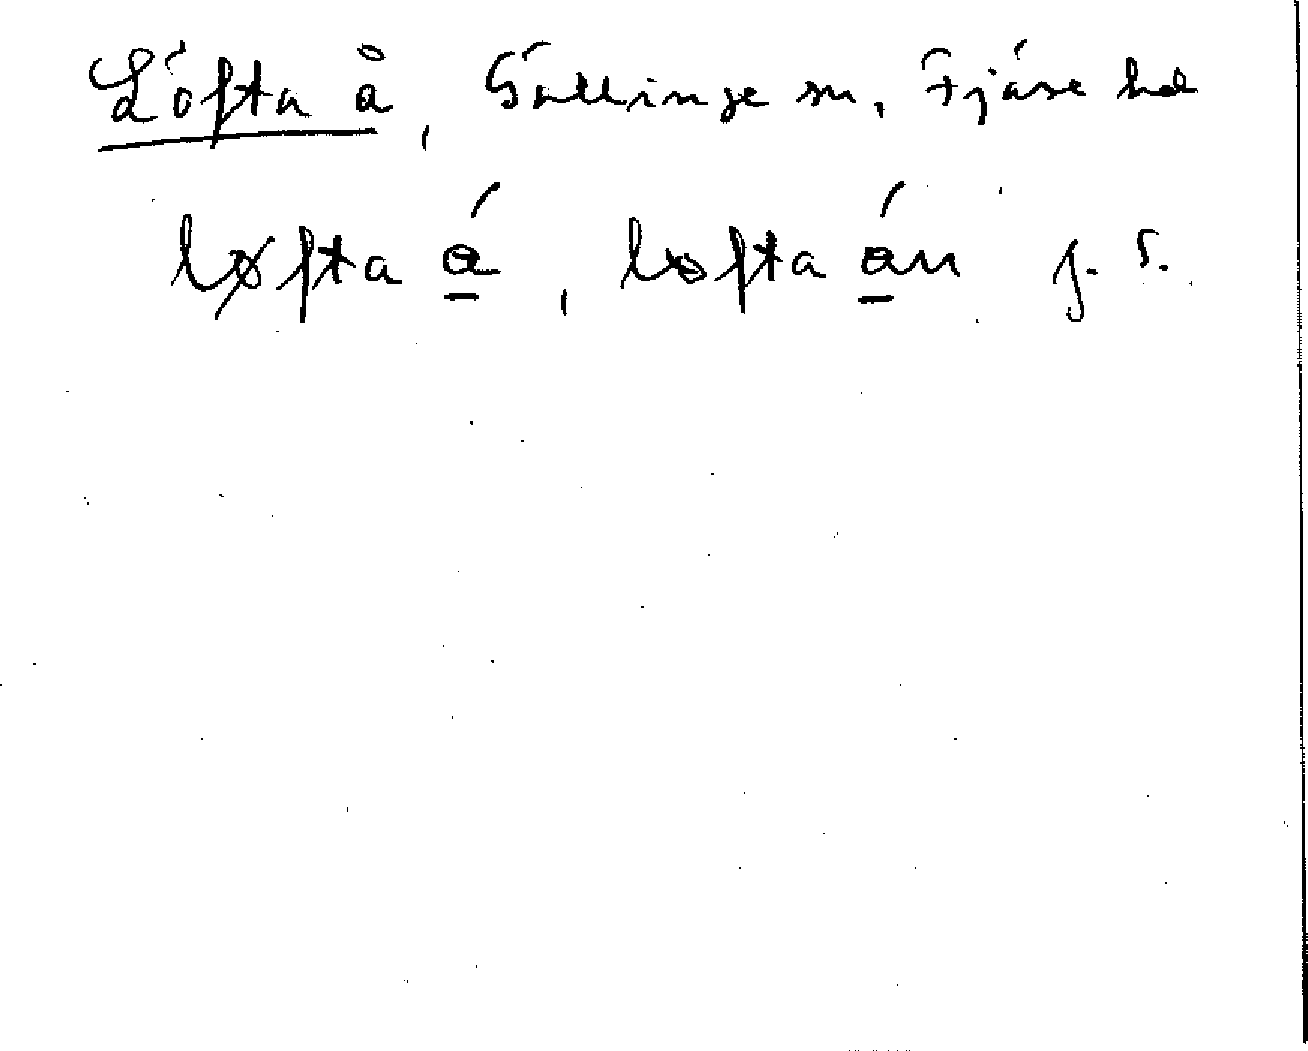 Löfta å, Gällinge sn, Fjäre hd
løfta á, løfta án f. s.